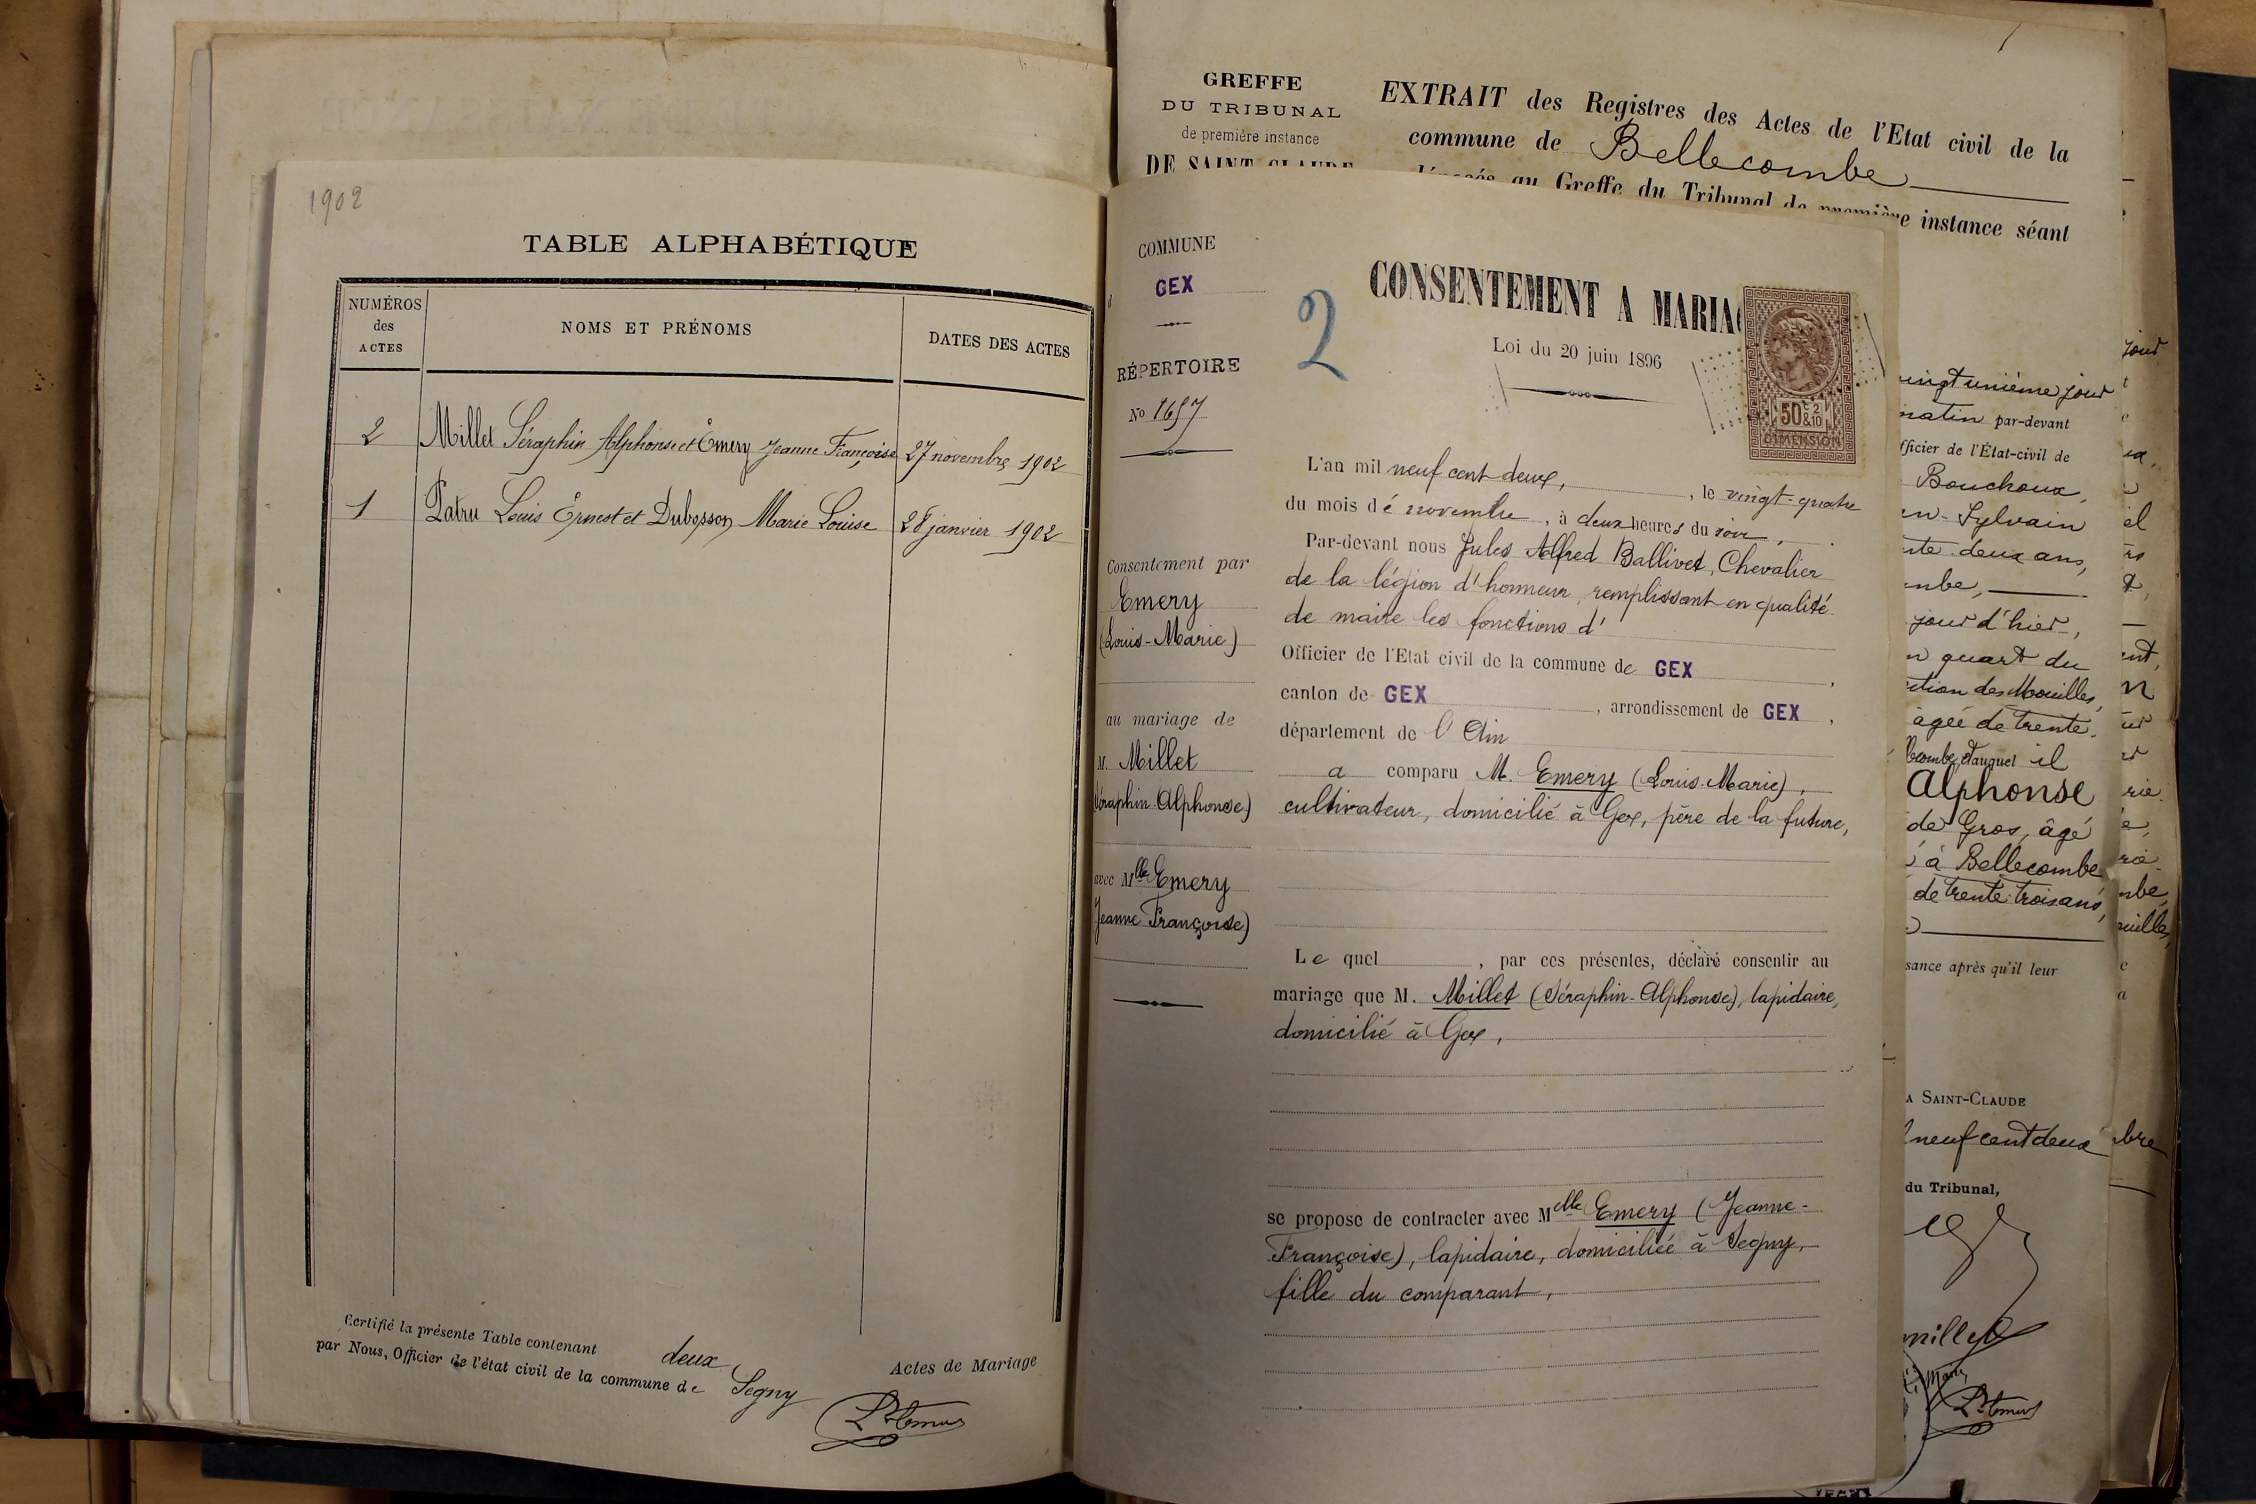 1902
TABLE ALPHABÉTIQUE
NUMÉROS
des
ACTES
NOMS ET PRÉNOMS
DATES DES ACTES
2 Millet Séraphin Alphonse et Emery Jeanne Françoise 27 novembre 1902
1 Patru Louis Ernest et Dubosson Marie Louise 28 janvier 1902
Certifié la présente Table contenant deux Actes de Mariage
par Nous, Officier de l'état civil de la commune de Segny
GREFFE
DU TRIBUNAL
de première instance
DE SAINT CLAUDE
EXTRAIT des Registres des Actes de l'Etat civil de la
commune de Bellecombe
déposés au Greffe du Tribunal de première instance séant
COMMUNE
d GEX
RÉPERTOIRE
No 1657
Consentement par
Emery
(Louis-Marie)
au mariage de
M. Millet
(Séraphin-Alphonse)
avec Mlle Emery
Jeanne Françoise)
2
CONSENTEMENT A MARIAG
Loi du 20 juin 1896
50c 2/10
DIMENSION
L'an mil neuf cent deux, , le vingt-quatre
du mois de novembre, à deux heures du soir,
Par-devant nous Jules Alfred Ballivet, Chevalier
de la légion d'honneur, remplissant en qualité
de maire les fonctions d'
Officier de l'Etat civil de la commune de GEX ,
canton de GEX , arrondissement de GEX ,
département de l'Ain
a comparu M. Emery (Louis-Marie),
cultivateur, domicilié à Gex, père de la future,
Le quel , par ces présentes, déclaré consentir au
mariage que M. Millet (Séraphin-Alphonse), lapidaire,
domicilié à Gex,
se propose de contracter avec Melle Emery (Jeanne-
Françoise), lapidaire, domiciliée à Segny,
fille du comparant,
vingt unième jour
matin par-devant
fficier de l'État-civil de
Bouchoux,
n-Sylvain
nte deux ans,
mbe,
jour d'hier,
n quart du
ction des Mouilles,
agée de trente
lecombe, et auquel il
Alphonse
de Gros, âgé
à Bellecombe
de trente trois ans,
sance après qu'il leur
A SAINT-CLAUDE
neuf cent deux
du Tribunal,
jour
bre
SEGNY